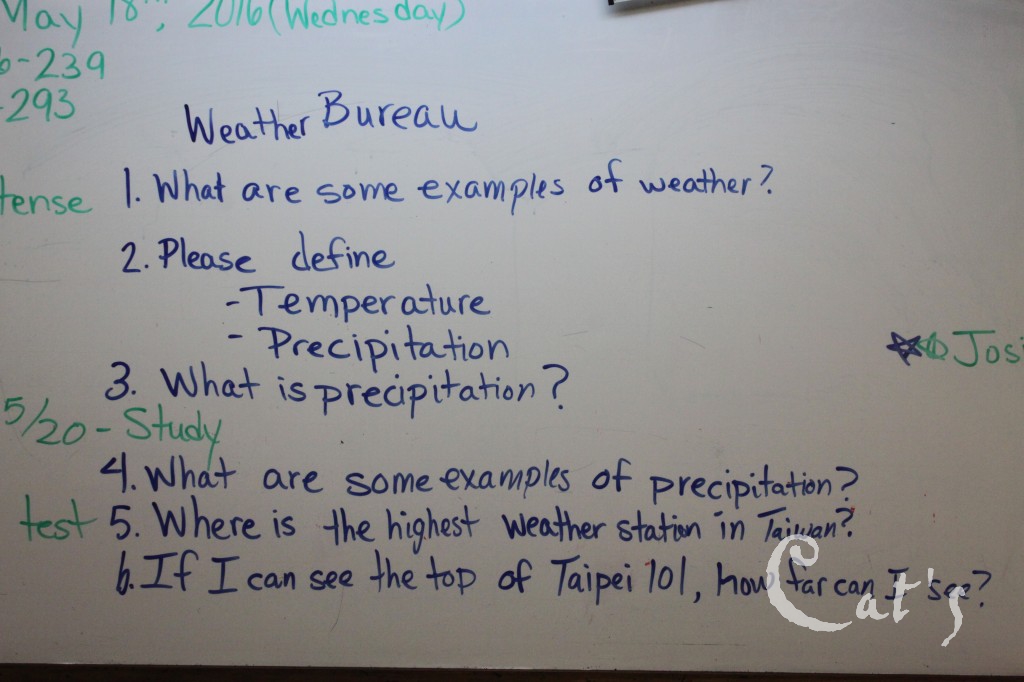 May 18th, 2016 (Wednesday)
-239
-293
Weather Bureau
tense
1. What are some examples of weather?
2. Please define
- Temperature
- Precipitation
Josi
3. What is precipitation?
5/20 - Study
4. What are some examples of precipitation?
test
5. Where is the highest weather station in Taiwan?
6. If I can see the top of Taipei 101, how far can I see?
Cat's